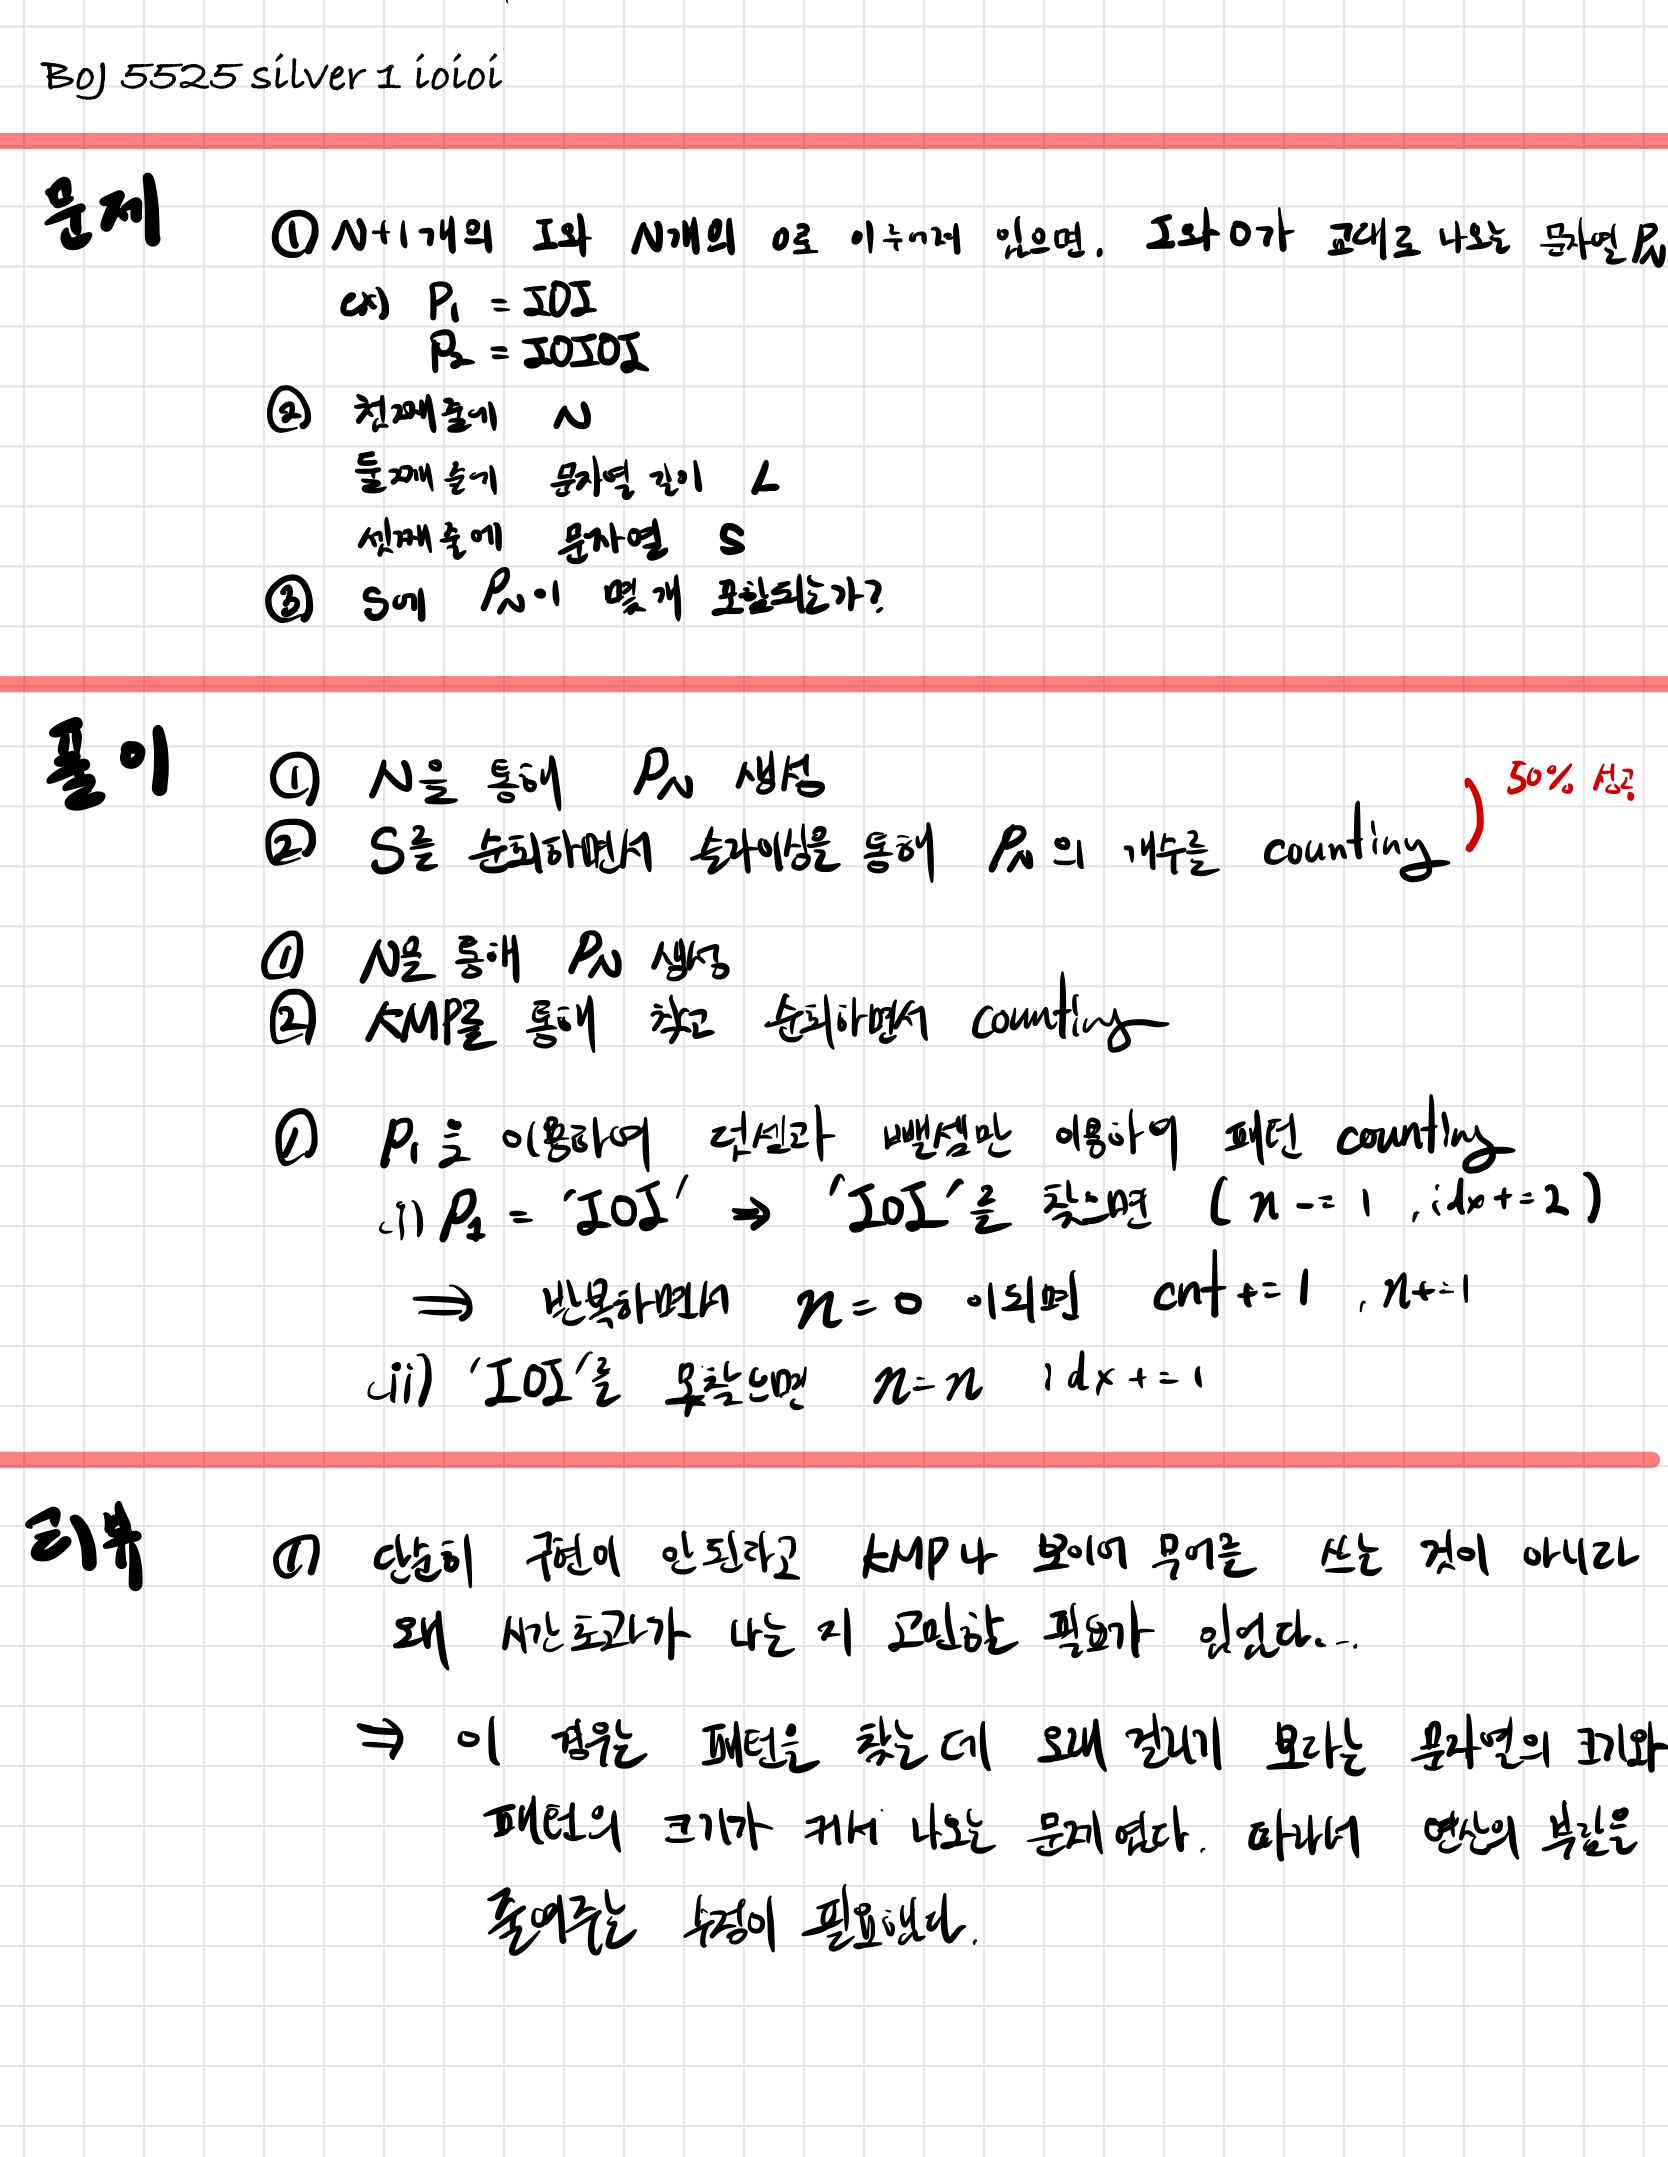 BOJ 5525 silver 1 ioioi
문제
① N+1개의 I와 N개의 O로 이루어져 있으면, I와 O가 교대로 나오는 문자열 PN
ex) P1 = IOI
P2 = IOIOI
② 첫째줄에 N
둘째줄에 문자열 길이 L
셋째줄에 문자열 S
③ S에 PN이 몇개 포함되는가?
풀이
① N을 통해 PN 생성
② S를 순회하면서 슬라이싱을 통해 PN의 개수를 counting
50% 성공
① N을 통해 PN 생성
② KMP를 통해 찾고 순회하면서 counting
① P1을 이용하여 덧셈과 뺄셈만 이용하여 패턴 counting
i) P1 = 'IOI' → 'IOI'를 찾으면 (n -= 1, idx += 2)
⇒ 반복하면서 n = 0 이되면 cnt += 1, n += 1
ii) 'IOI'를 못찾으면 n = n idx += 1
리뷰
① 단순히 구현이 안된다고 KMP나 보이어 무어를 쓰는 것이 아니라
왜 시간초과가 나는 지 고민할 필요가 있었다...
⇒ 이 경우는 패턴을 찾는 데 오래 걸리기 보다는 문자열의 크기와
패턴의 크기가 커서 나오는 문제였다. 따라서 연산의 부담을
줄여주는 수정이 필요했다.